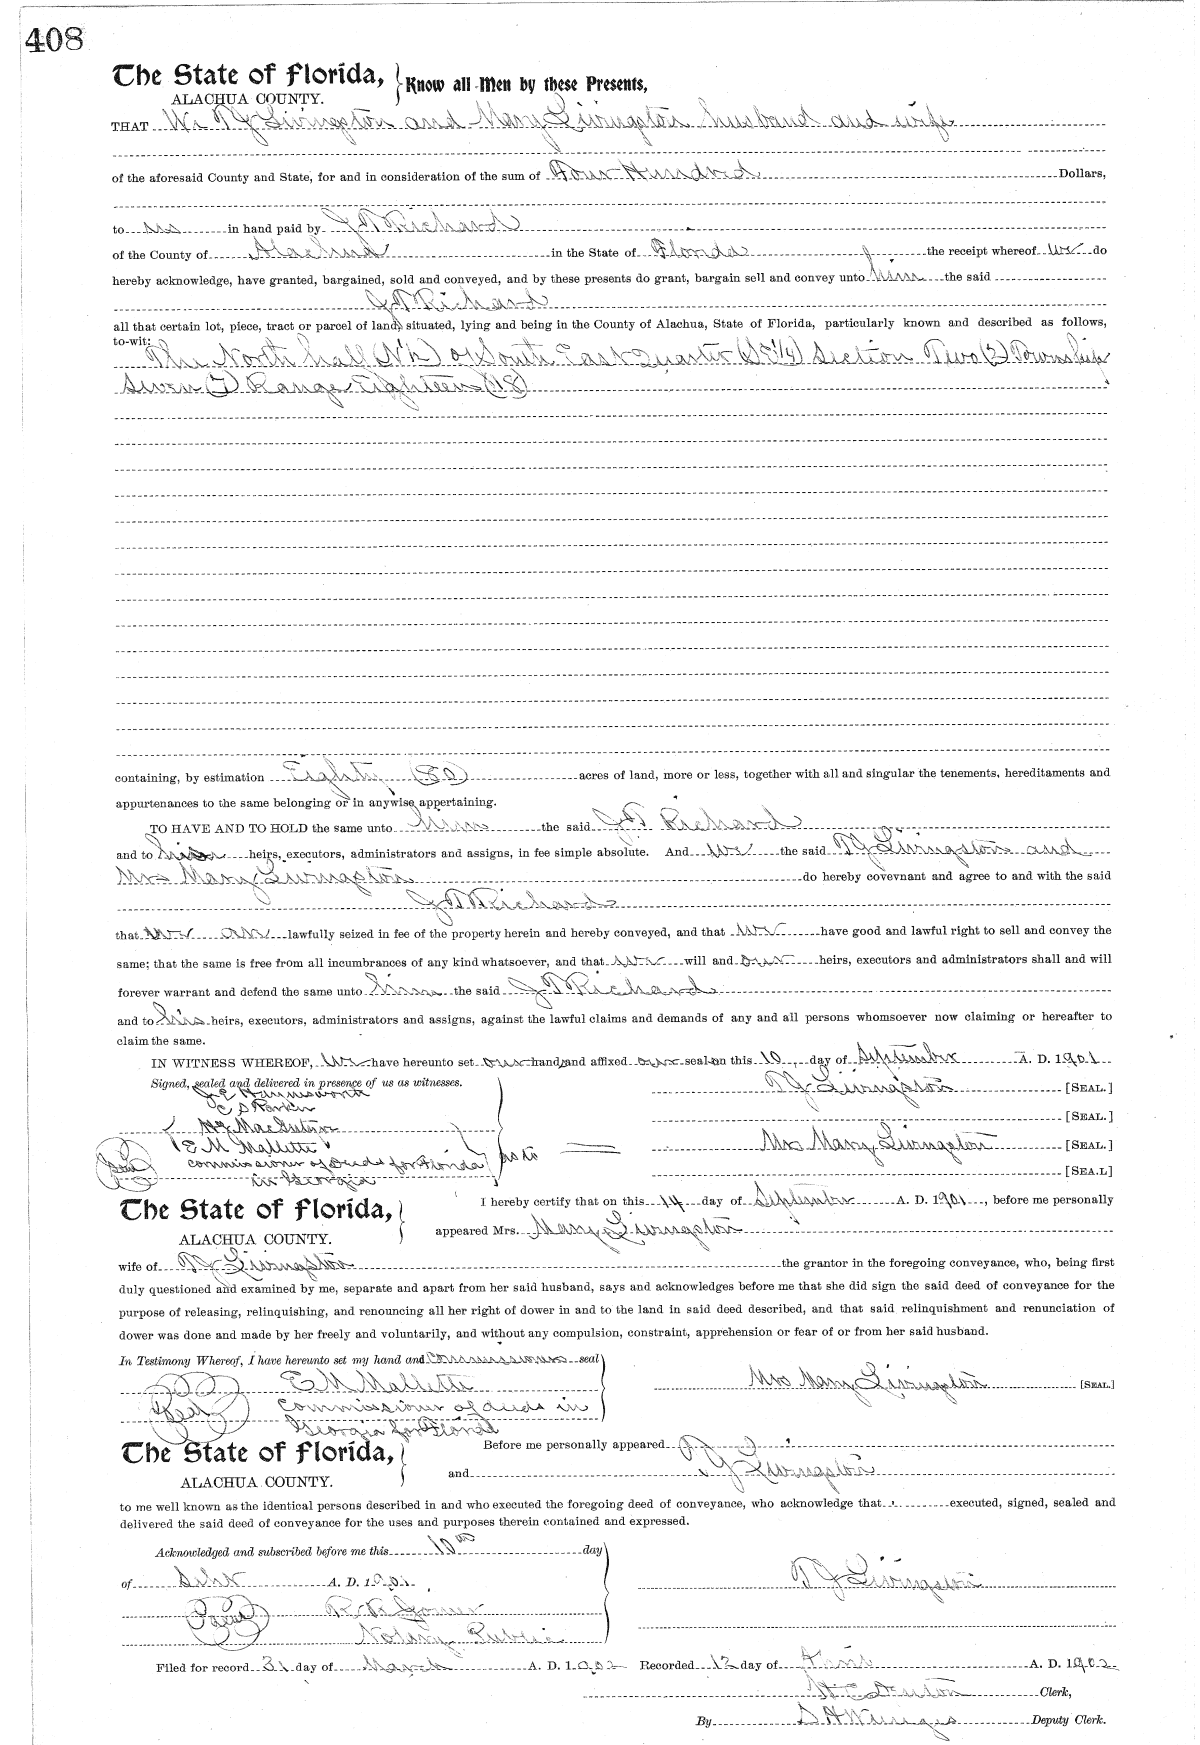 408
The State of Florida,
ALACHUA COUNTY.
Know all Men by these Presents,
THAT We T J Livingston and Mary Livingston husband and wife
of the aforesaid County and State, for and in consideration of the sum of Four Hundred Dollars,
to us in hand paid by J T Richard
of the County of Alachua in the State of Florida, the receipt whereof we do
hereby acknowledge, have granted, bargained, sold and conveyed, and by these presents do grant, bargain sell and convey unto him the said
J T Richard
all that certain lot, piece, tract or parcel of land, situated, lying and being in the County of Alachua, State of Florida, particularly known and described as follows,
to-wit:
The North half (N½) of South East Quarter (SE¼) Section Two (2) Township
Seven (7) Range Eighteen (18)
containing, by estimation Eighty (80) acres of land, more or less, together with all and singular the tenements, hereditaments and
appurtenances to the same belonging or in anywise appertaining.
TO HAVE AND TO HOLD the same unto him the said J T Richard
and to his heirs, executors, administrators and assigns, in fee simple absolute. And we the said T J Livingston and
Mrs Mary Livingston do hereby covevnant and agree to and with the said
J T Richards
that we are lawfully seized in fee of the property herein and hereby conveyed, and that we have good and lawful right to sell and convey the
same; that the same is free from all incumbrances of any kind whatsoever, and that we will and our heirs, executors and administrators shall and will
forever warrant and defend the same unto him the said J T Richard
and to his heirs, executors, administrators and assigns, against the lawful claims and demands of any and all persons whomsoever now claiming or hereafter to
claim the same.
IN WITNESS WHEREOF, We have hereunto set our hand and affixed our seal on this 10 day of September A. D. 1901
Signed, sealed and delivered in presence of us as witnesses.
T J Livingston [SEAL.]
C S Parker
[SEAL.]
Mrs Mary Livingston [SEAL.]
E M Mallette
Seal
commissioner of Deeds for Florida
as to
[SEA.L]
in Georgia
The State of Florida,
ALACHUA COUNTY.
I hereby certify that on this 14 day of September A. D. 1901, before me personally
appeared Mrs. Mary Livingston
wife of T J Livingston the grantor in the foregoing conveyance, who, being first
duly questioned and examined by me, separate and apart from her said husband, says and acknowledges before me that she did sign the said deed of conveyance for the
purpose of releasing, relinquishing, and renouncing all her right of dower in and to the land in said deed described, and that said relinquishment and renunciation of
dower was done and made by her freely and voluntarily, and without any compulsion, constraint, apprehension or fear of or from her said husband.
In Testimony Whereof, I have hereunto set my hand and commissioners seal
E M Mallette
Mrs Mary Livingston [SEAL.]
Seal
Commissioner of deeds in
Georgia for Florida
The State of Florida,
ALACHUA COUNTY.
Before me personally appeared
and T J Livingston
to me well known as the identical persons described in and who executed the foregoing deed of conveyance, who acknowledge that executed, signed, sealed and
delivered the said deed of conveyance for the uses and purposes therein contained and expressed.
Acknowledged and subscribed before me this 10th day
of Sept A. D. 1901.
T J Livingston
Seal
Notary Public
Filed for record 31 day of March A. D. 1902 Recorded 12 day of A. D. 1902
Clerk,
By Deputy Clerk.